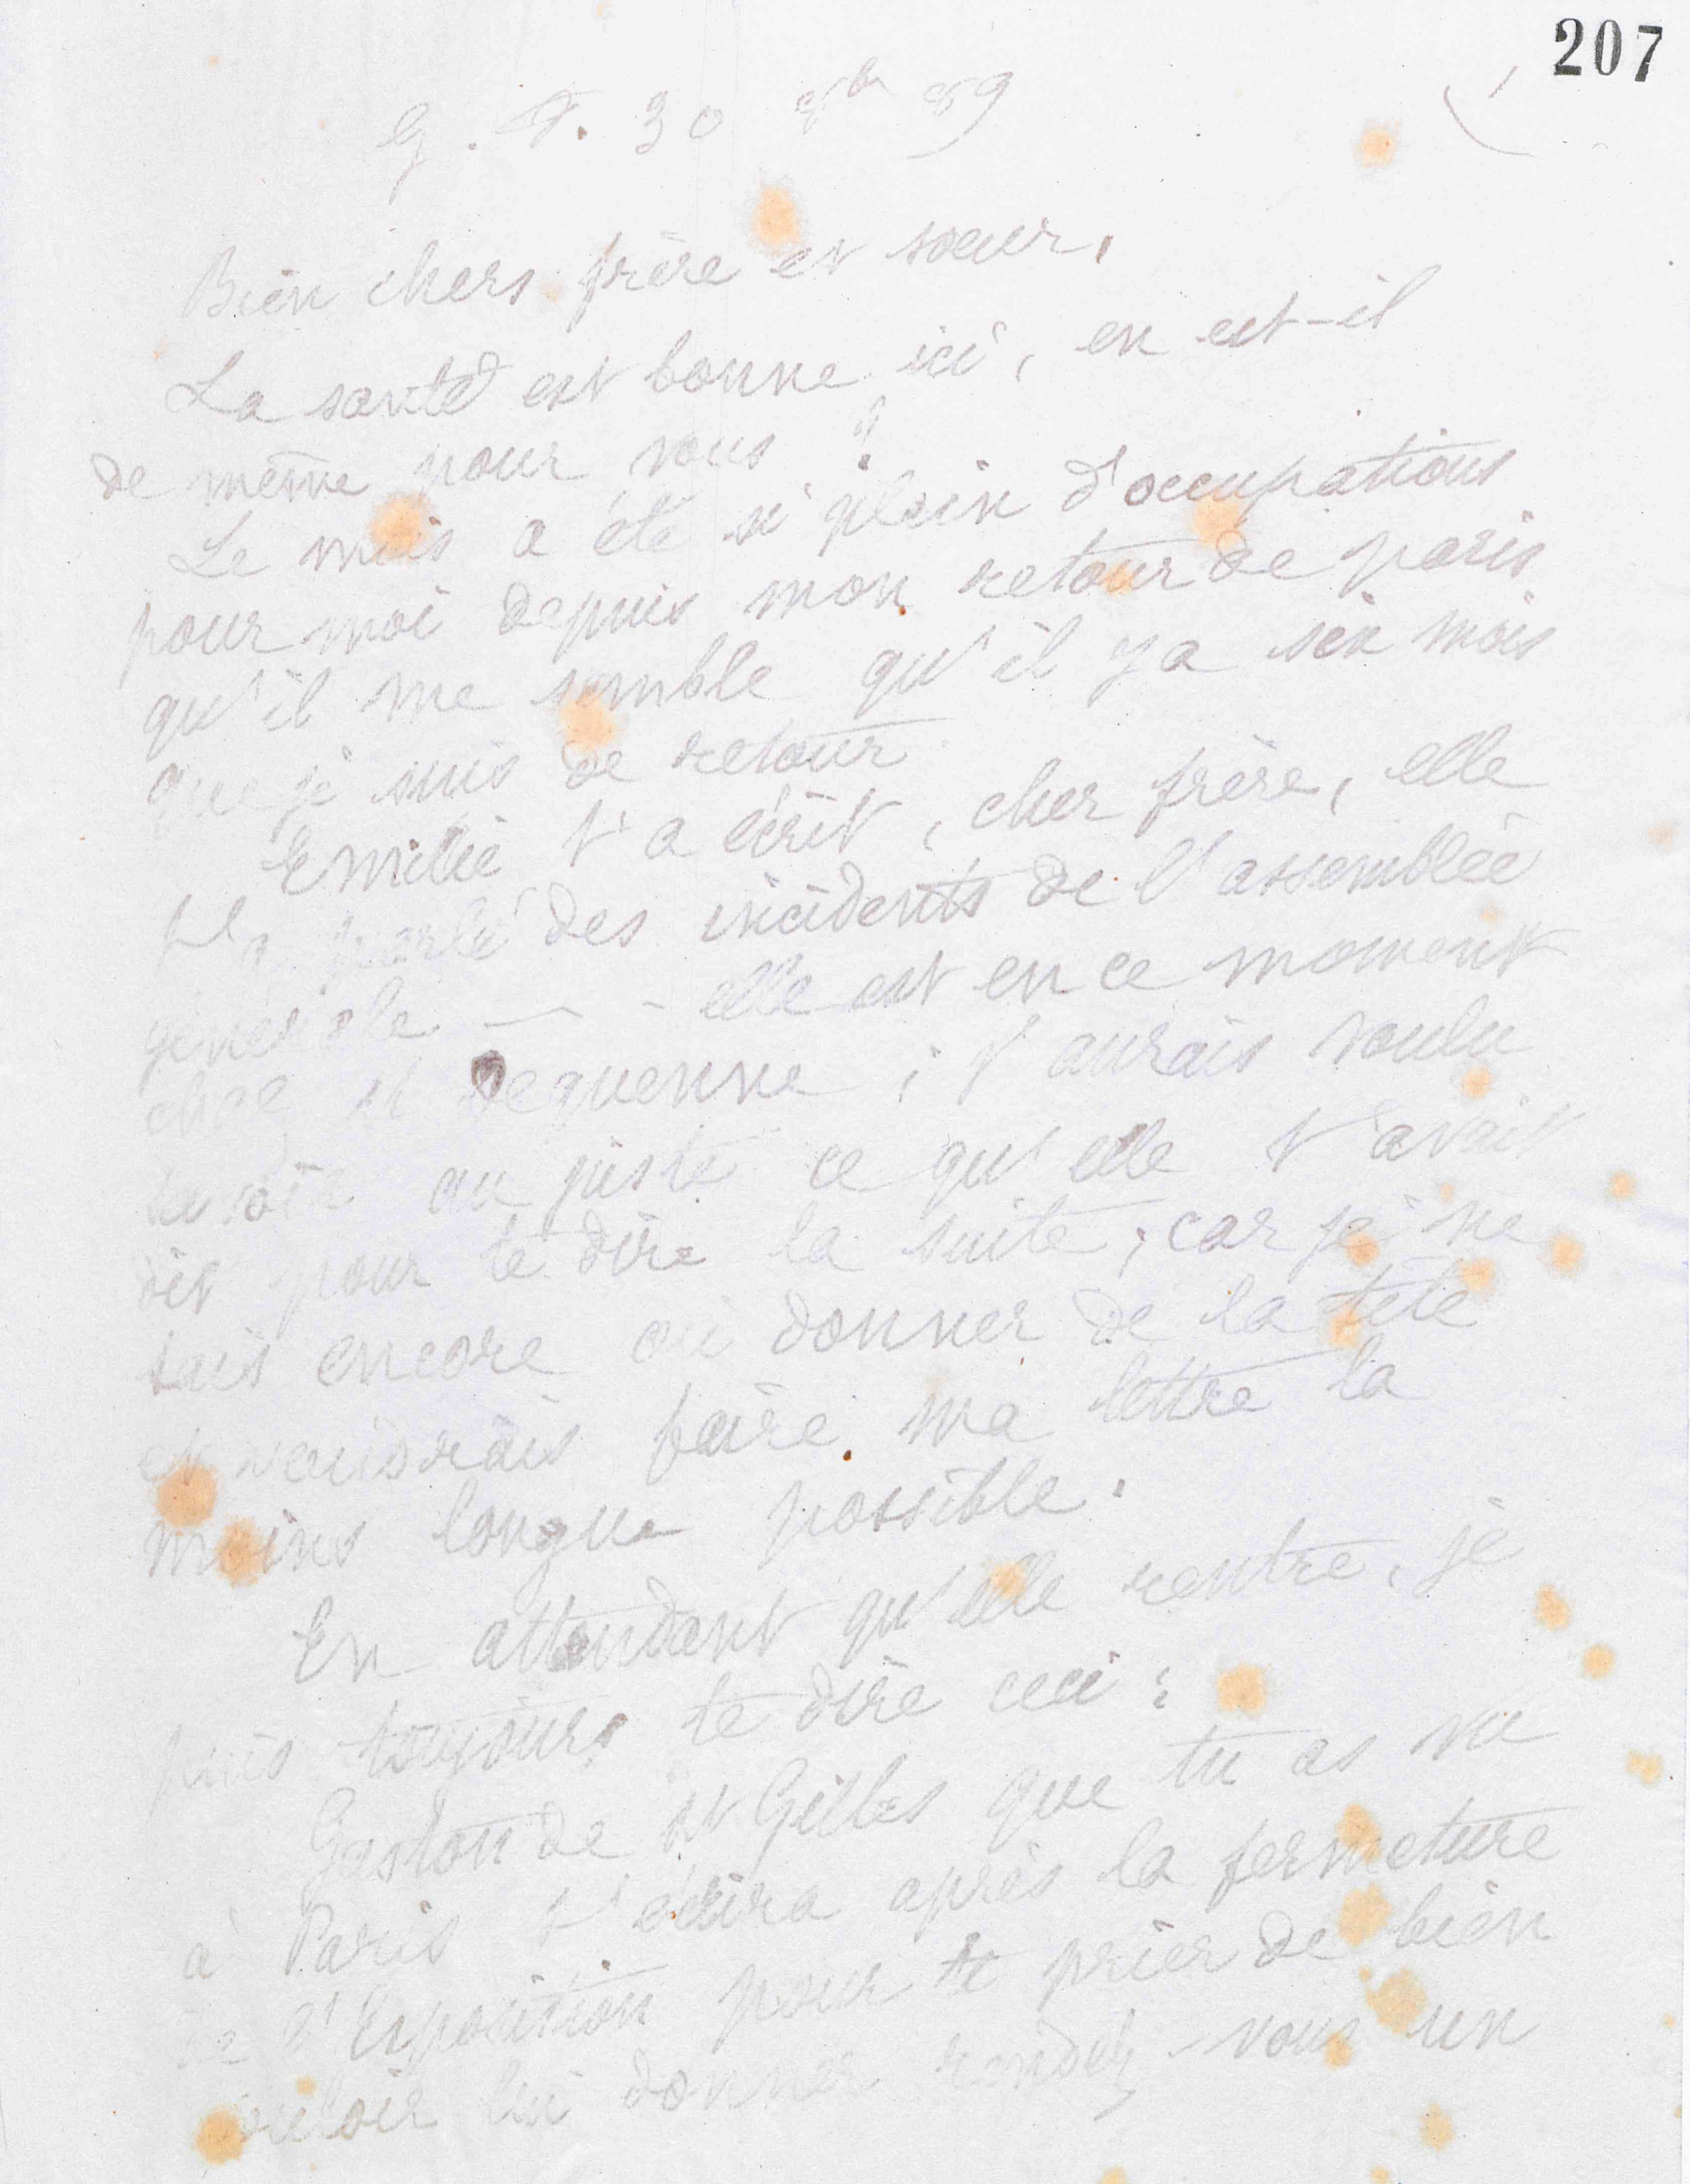 207
G. F. 30 8bre 89
Bien chers frère et sœur,
La santé est bonne ici, en est-il
de même pour vous ?
Le mois a été si plein d'occupations
pour moi depuis mon retour de paris
qu'il me semble qu'il y a six mois
que je suis de retour
Emilie t'a écrit, cher frère, elle
t'a parlé des incidents de l'assemblée
générale — - elle est en ce moment
chez Mr Dequenne ; j'aurais voulu
savoir au juste ce qu'elle t'avait
dit pour te dire la suite ; car je ne
sais encore où donner de la tête
et voudrais faire ma lettre la
moins longue possible.
En attendant qu'elle rentre, je
puis toujours te dire ceci :
Gaston de St Gilles que tu as vu
à Paris t'écrira après la fermeture
de l'Exposition pour te prier de bien
vouloir lui donner rendez-vous un